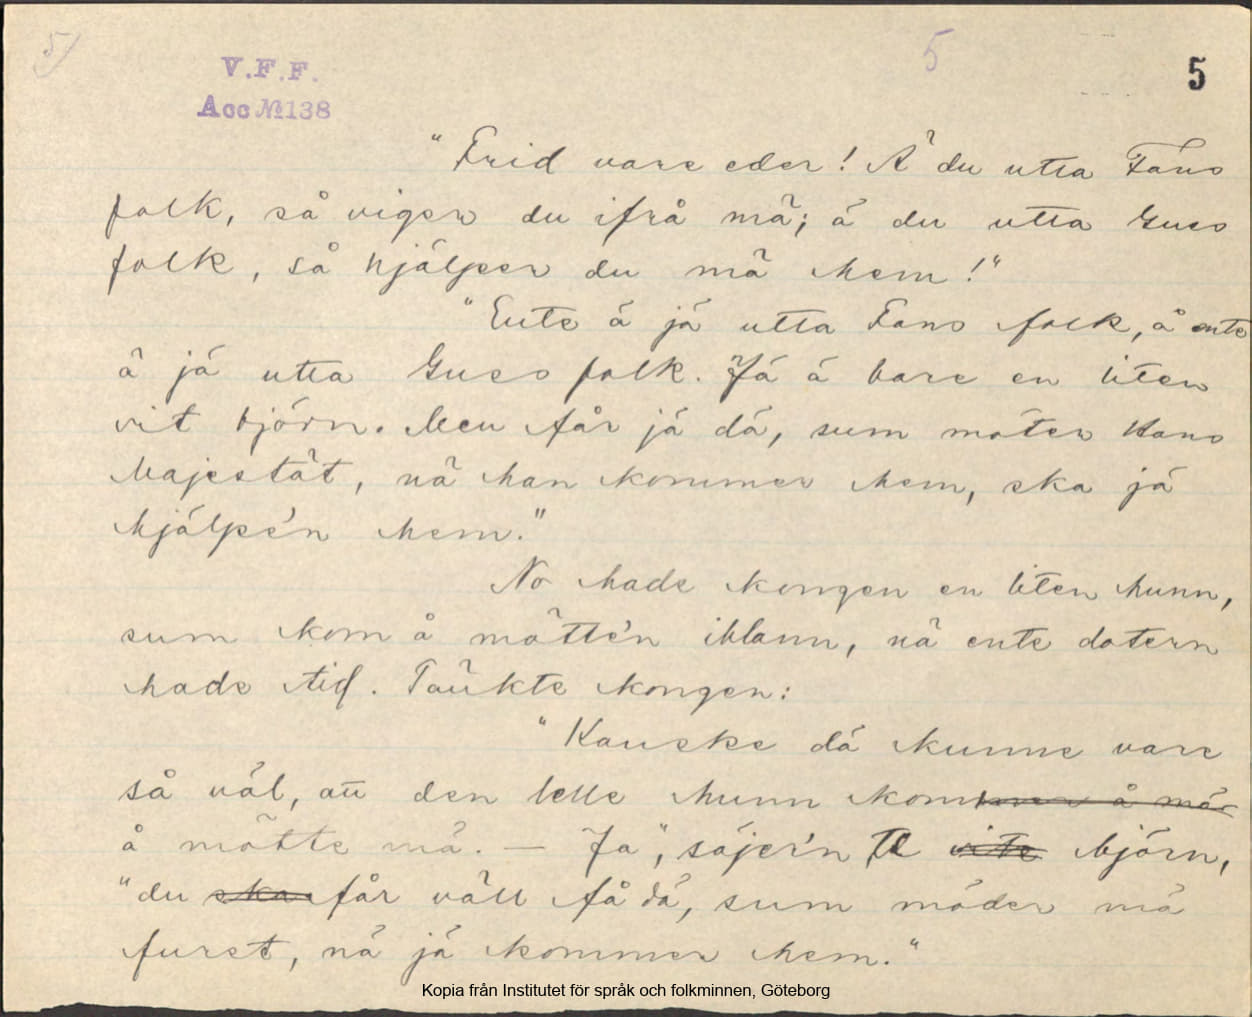 5)
V.F.F.
Acc № 138
5
5
"Frid vare eder! Ä du utta Fans
folk, så viger du ifrå mä; ä du utta Guss
folk, så hjälper du mä hem!"
"Ente ä jä utta Fans folk, å ente
ä jä utta Guss folk. Jä ä bare en liten
vit björn. Men får jä dä, sum möter Hans
Majestät, nä han kommer hem, ska jä
hjälpe'n hem."
No hade kongen en liten hunn,
sum kom å mötte'n iblann, nä ente dotern
hade tid. Tänkte kongen:
"Kanske dä kunne vare
så väl, att den lelle hunn kommer å mör
å mötte mä. — Ja", säjer'n te vite björn,
"du ska får väll få dä, sum möder mä
furst, nä jä kommer hem."
Kopia från Institutet för språk och folkminnen, Göteborg